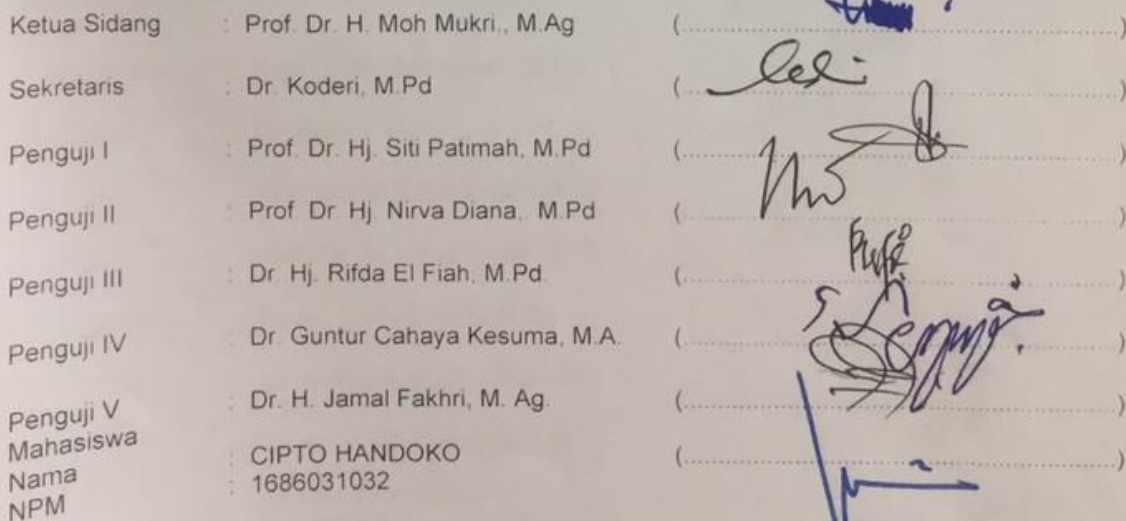 Ketua Sidang : Prof. Dr. H. Moh Mukri., M.Ag (....................)
Sekretaris : Dr. Koderi, M.Pd (....................)
Penguji I : Prof. Dr. Hj. Siti Patimah, M.Pd (....................)
Penguji II : Prof Dr. Hj. Nirva Diana, M.Pd (....................)
Penguji III : Dr. Hj. Rifda El Fiah, M.Pd. (....................)
Penguji IV : Dr. Guntur Cahaya Kesuma, M.A. (....................)
Penguji V : Dr. H. Jamal Fakhri, M. Ag. (....................)
Mahasiswa
Nama : CIPTO HANDOKO (....................)
NPM : 1686031032